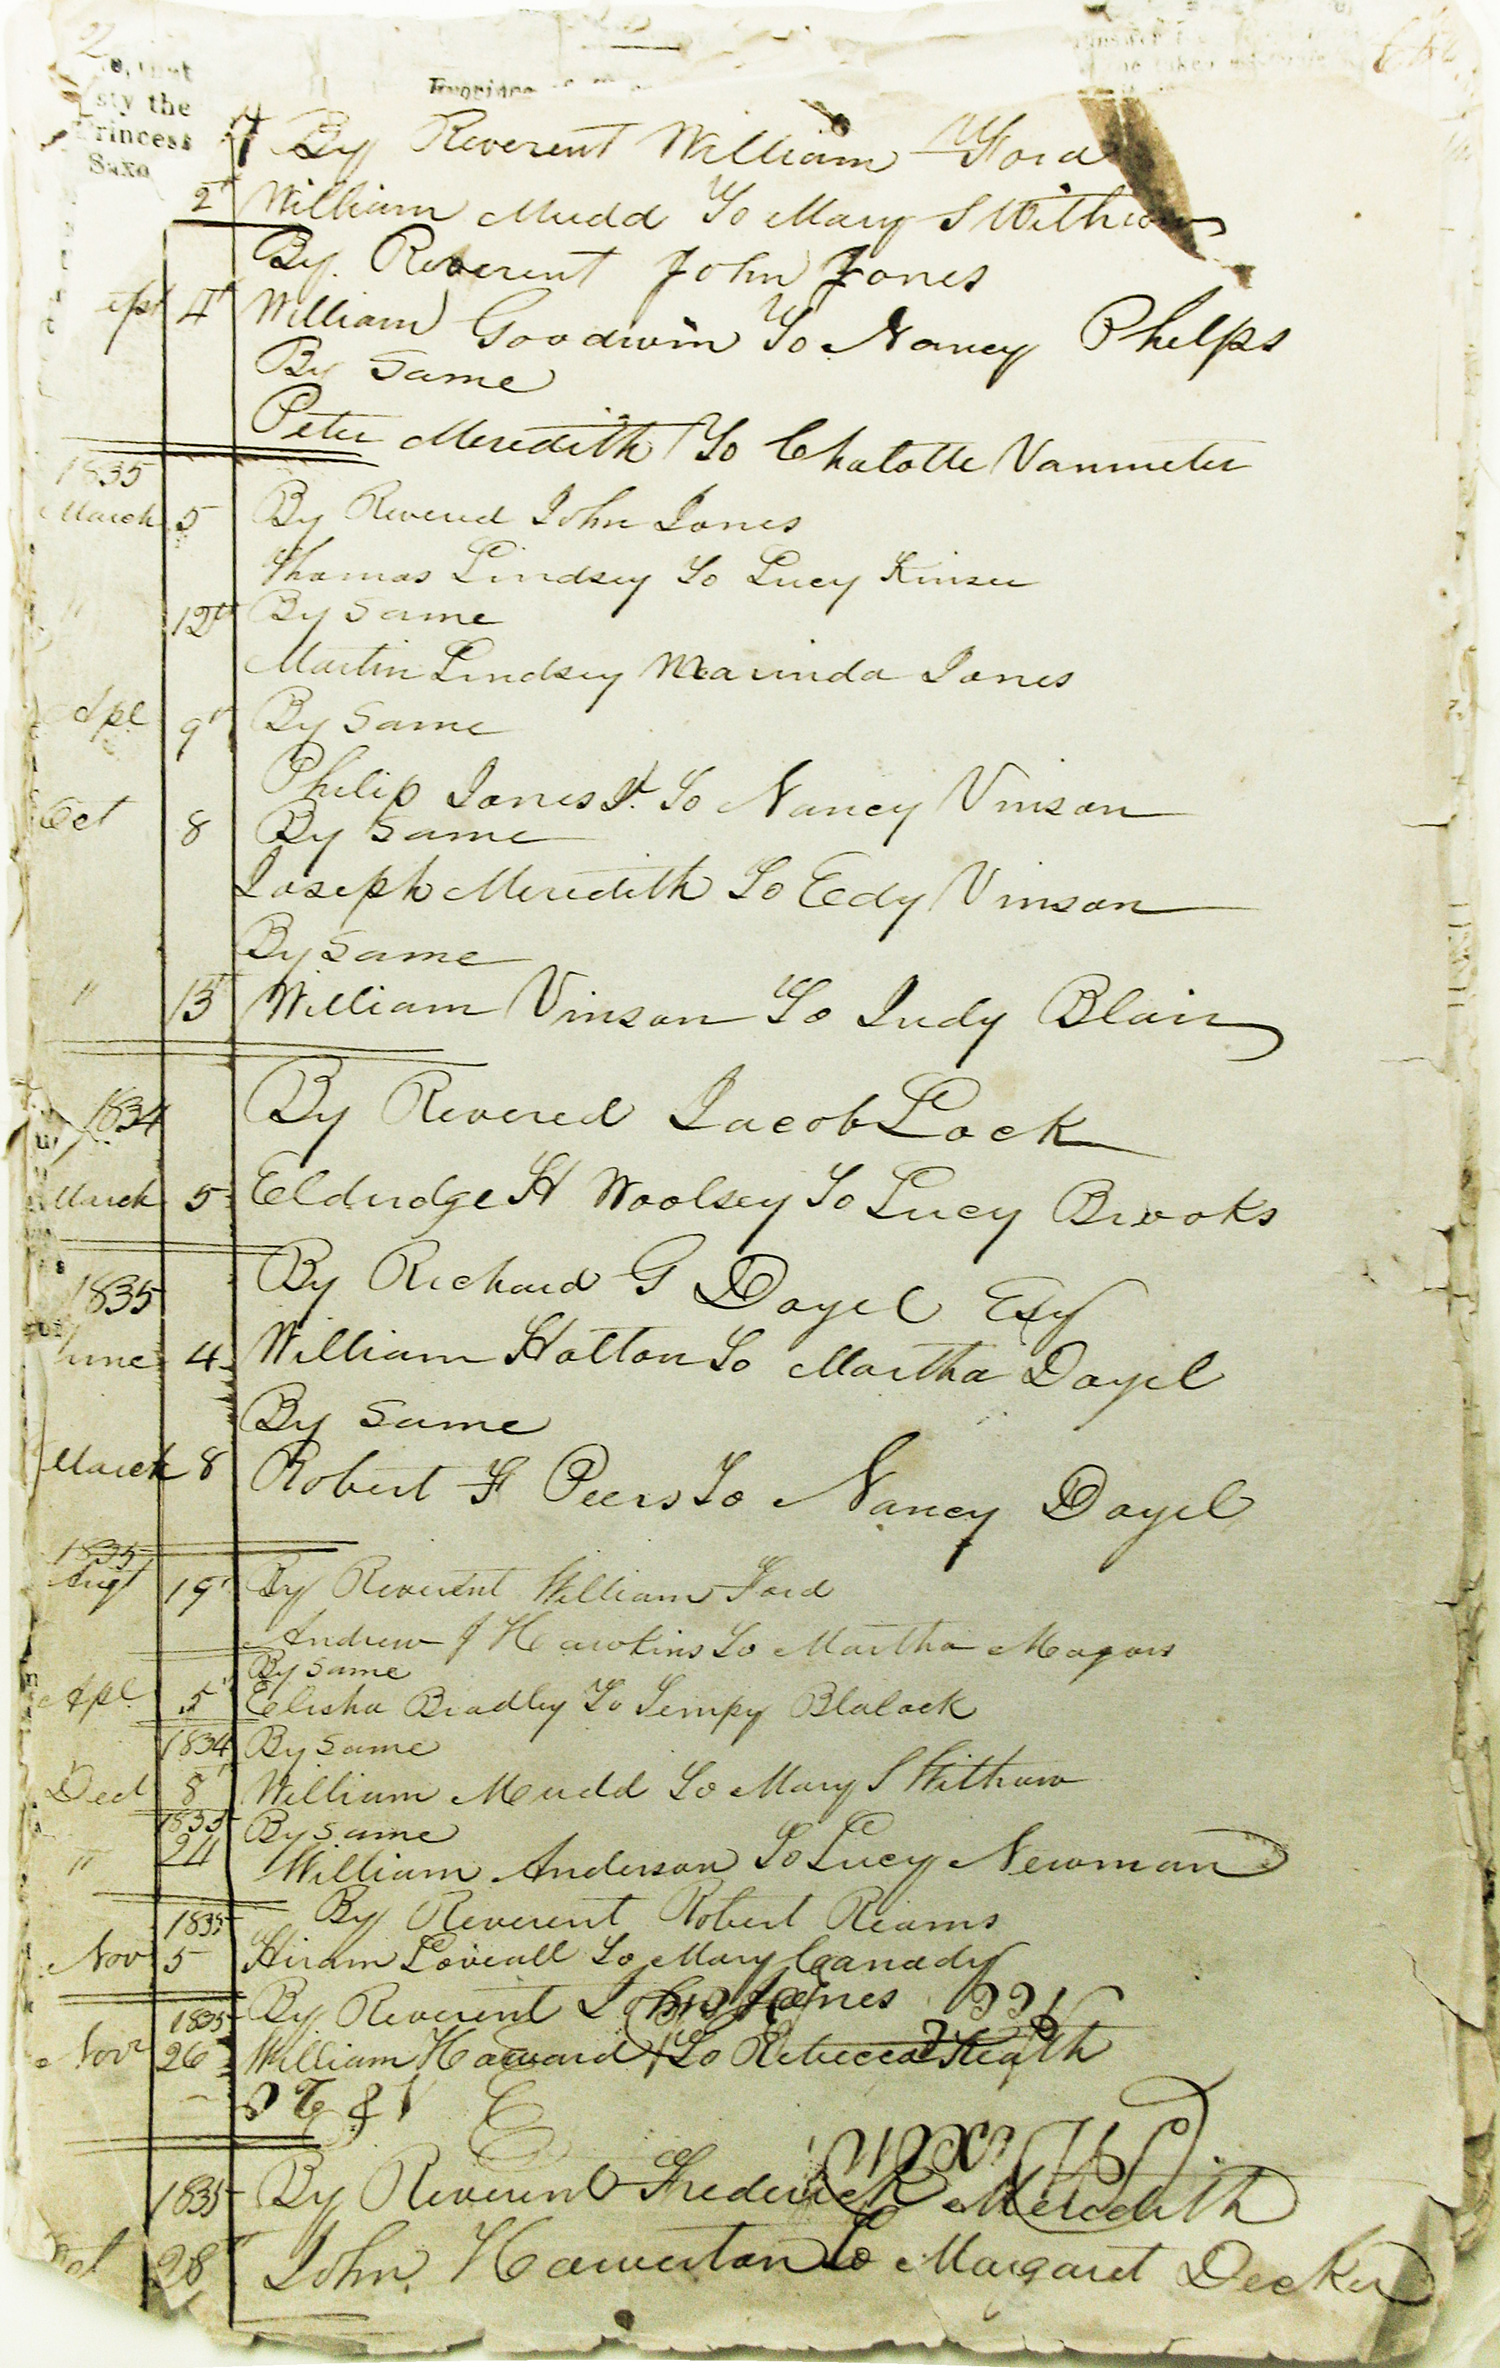 2
sty the
Princess
Saxo
By Reverent William Ford
2d William Mudd To Mary S Withrow
By Reverent John Jones
4th William Goodwin To Nancy Phelps
By Same
Peter Meredith To Chalotte Vanmeter
1835
March 5 By Revered John Jones
Thomas Lindsey To Lucy Kinser
" 12th By Same
Martin Lindsey Marinda Jones
Apl 9th By Same
Philip Jones Jr To Nancy Vinson
Oct 8 By Same
Joseph Meredith To Eedy Vinson
By Same
" 15 William Vinson To Judy Blair
1834 By Revered Jacob Lock
March 5 Eldridge H Woolsey To Lucy Brooks
1835 By Richard G Dayel Esq
June 4 William Hatton To Martha Dayel
By Same
March 8 Robert F Peers To Nancy Dayel
1835
Augt 19 By Reverent William Ford
Andrew J Hawkins To Martha Magars
By Same
Apl 5th Elisha Bradley To Tempy Blalock
1834 By Same
Decd 8th William Mudd To Mary S Withraw
1835 By Same
" 24 William Anderson To Lucy Newman
1835 By Reverent Robert Reams
Nov 5 Hiram Loveall To Mary Canady
1835 By Reverent John Jones
Novr 26 William Haward To Rebecca Heath
1835 By Reverend Frederick Meredith
28th John Hawerton to Margaret Decker